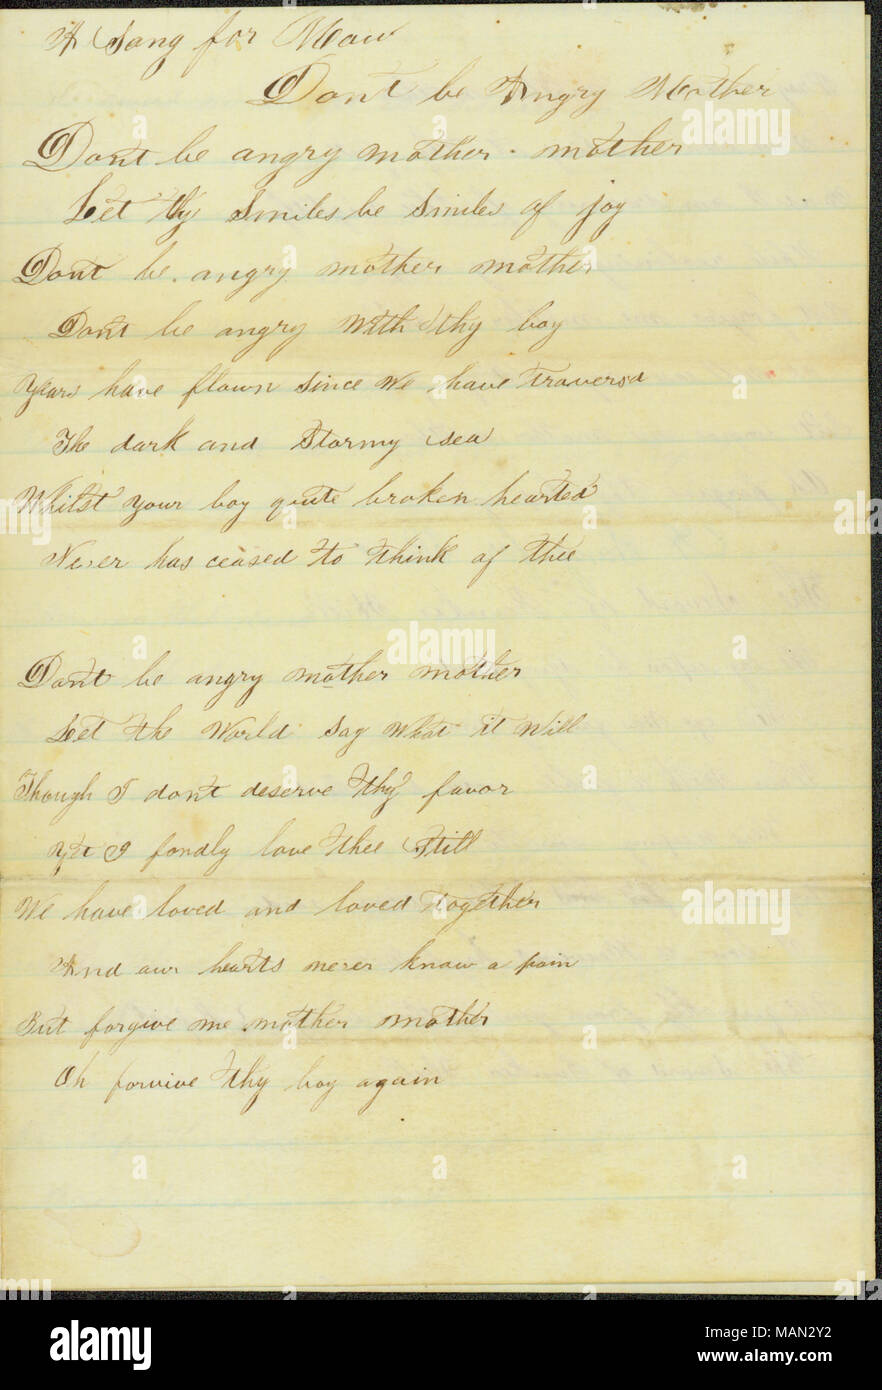 A Song for Maw
Dont be Angry Mother
Dont be angry mother. mother
Let thy Smiles be Smiles of joy
Dont be. angry mother mother
Dont be angry With thy boy
Years have flown Since We have traversd
The dark and Stormy sea
Whilst your boy quite broken hearted
Never has ceased to think of thee
Dont be angry mother mother
Let the World say What it Will
Though I don't deserve thy favor
Yet I fondly love thee Still
We have loved and loved together
And our hearts never know a pain
But forgive me mother mother
Oh forvive thy boy again
alamy
alamy
alamy
alamy
alamy
alamy
alamy
a
a
a
a
alamy
Image ID: MAN2Y2
www.alamy.com